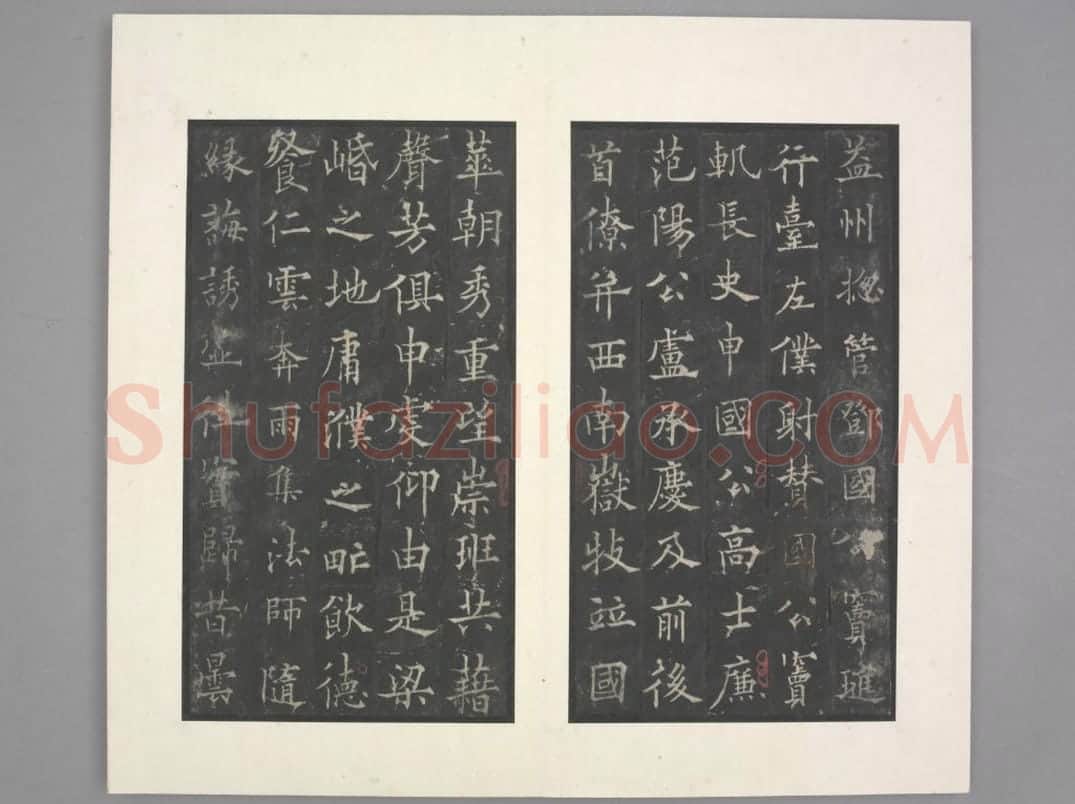 益州揔管鄧國公竇璡
行臺左僕射贊國公竇
軌長史申國公高士廉
范陽公盧承慶及前後
首僚并西南嶽牧竝國
華朝秀重望崇班共藉
聲芳俱申虔仰由是梁
㟭之地庸濮之甿飲德
餐仁雲奔雨集法師隨
緣誨誘虛往實歸昔曇
Shufaziliao.COM